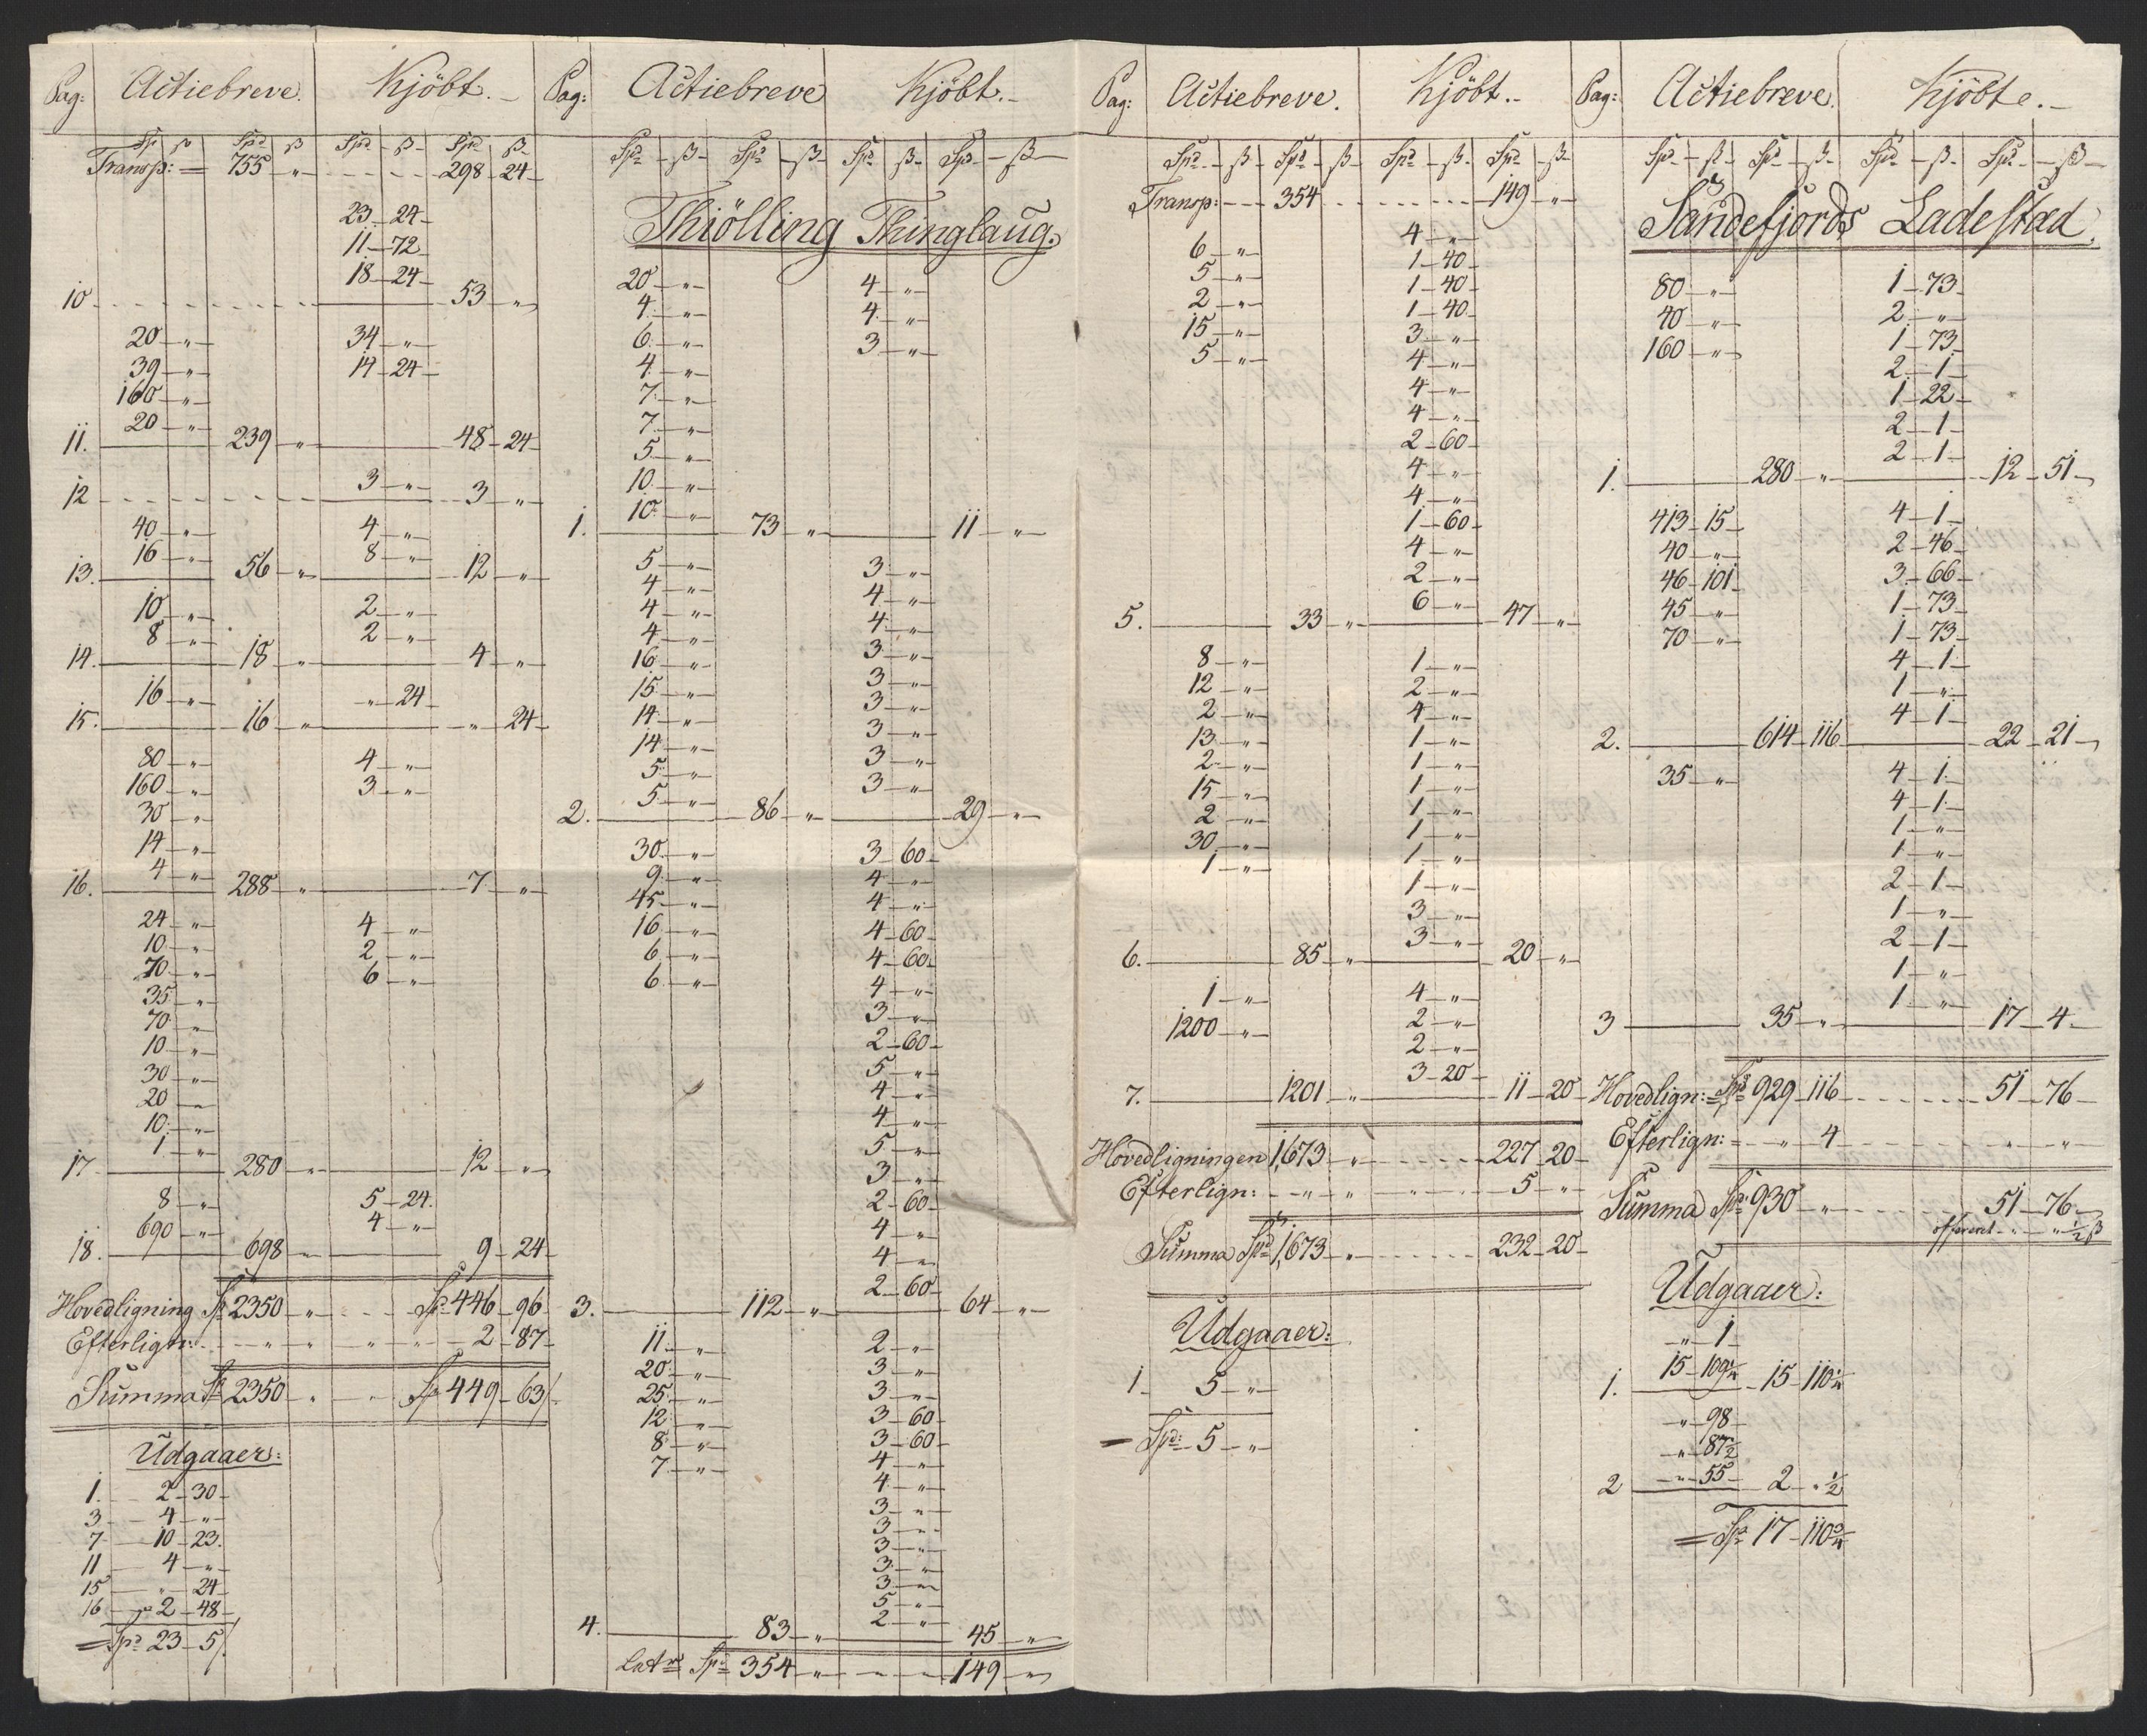 Pag: Actiebreve. Kjöbt.
Sp ß Spd ß Spd ß Spd ß
Transp: = 755 " - - - 298 24
23 24
11 72
18 24
10 - - - 53 "
20 " 34 "
39 " 14 24
160 "
20 "
11. 239 " 48 24
3 "
12 - - - 3 "
40 " 4 "
16 " 8 "
13. 56 " 12 "
10 " 2 "
8 " 2 "
14. 18 " 4 "
16 " " 24
15. 16 " " 24
80 " 4 "
160 " 3 "
30 "
14 "
4 "
16. 288 " 7 "
24 " 4 "
10 " 2 "
70 " 6 "
35 "
70 "
10 "
30 "
20 "
10 "
1 "
17 280 " 12 "
8 " 5 24
690 " 4 "
18. 698 " 9 24
Hovedligning Sp 2350 " - - Sp 446 96
Efterlign: " " " 2 87
Summa Sp 2350 " - Sp 449 63
Udgaaer:
1. 2 30
3 4 "
7 10 23
11 4 "
15 " 24
16 2 48
= Spd 23 5
Pag: Actiebreve Kjöbt.
Spd ß Spd ß Spd ß Spd ß
Thiölling Thinglaug.
20 " 4 "
4 " 4 "
6 " 3 "
4 "
7 "
7 "
5 "
10 "
10 "
1. 73 " 11 "
5 " 3 "
4 " 4 "
4 " 4 "
4 " 3 "
16 " 3 "
15 " 3 "
14 " 3 "
14 " 3 "
5 " 3 "
5 "
2. 86 " 29 "
30 " 3 60
9 " 4 "
45 " 4 "
16 " 4 60
6 " 4 60
6 " 4 "
3 "
2 60
5 "
4 "
4 "
5 "
3 "
2 60
4 "
4 "
2 60
3. 112 " 64 "
11 " 2 "
20 " 3 "
25 " 3 "
12 " 3 60
8 " 3 60
7 " 4 "
4 "
3 "
3 "
3 "
3 "
3 "
5 "
2 "
4. 83 " 45 "
Spd 354 " - - 149 "
Pag: Actiebreve. Kjöbt.
Spd ß Spd ß Spd ß Spd ß
Transp: - - 354 - - - 149 "
6 " 4 "
5 " 1 40
2 " 1 40
15 " 1 40
5 " 3 "
4 "
4 "
4 "
2 60
4 "
4 "
1 60
4 "
2 "
6 "
5. 33 " 47 "
8 " 1 "
12 " 2 "
2 " 4 "
13 " 1 "
2 " 1 "
15 " 1 "
2 " 1 "
30 " 1 "
1 " 1 "
1 "
3 "
3 "
6. 85 " 20 "
1 " 4 "
1200 " 2 "
2 "
3 20
7. 1201 " 11 20
Hovedligningen 1,673 " - - - 227 20
Efterlign: " " " 5 "
Summa Spd 1,673 " - - - 232 20
Udgaaer:
1. 5 "
= Spd: 5 "
Pag: Actiebreve. Kjöbte.
Spd ß Spd ß Spd ß Spd ß
Sandefjords Ladestæd.
80 " 1 73
40 " 2 "
160 " 1 73
2 1
1 22
2 1
2 1
1. 280 " 12 51
413 15 4 1
40 " 2 46
46 101 3 66
45 " 1 73
70 " 1 73
4 1
1 "
4 1
2. 614 116 22 21
35 " 4 1
4 1
1 "
1 "
2 1
1 "
2 1
1 "
1 "
3 35 " 17 4
Hovedlign: = Spd 929 116 - - - 51 76
Efterlign: " 4 - - - " "
Summa Spd 930 " - - - 51 76
" " ½ ß
Udgaaer:
" 1
15 109¼
1. 15 110¼
" 98
" 87½
" 55
2 2 " ½
= Spd 17 110¾